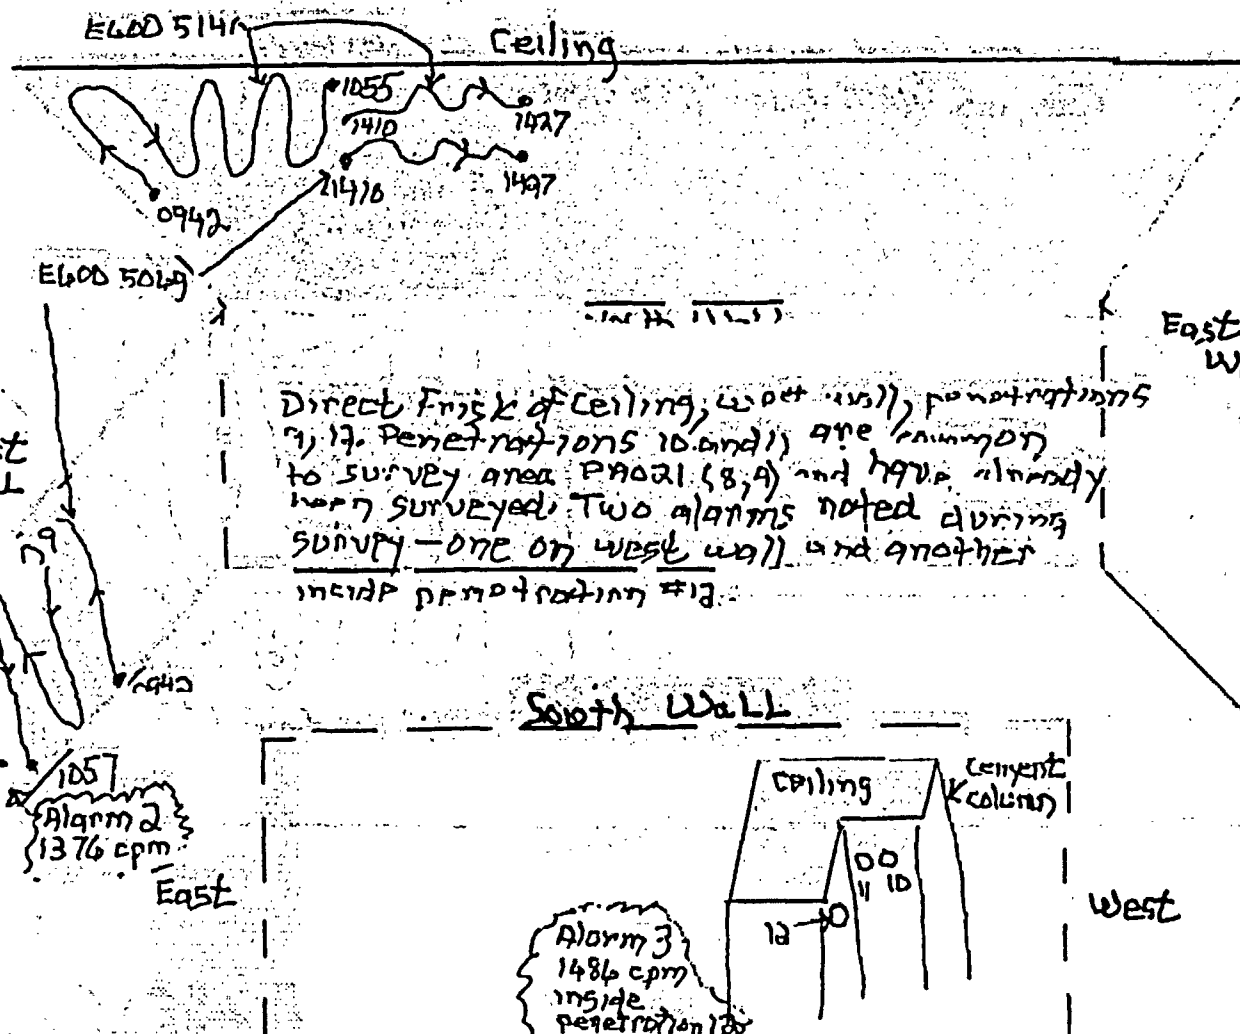 Ceiling
1055
1410
1427
1410
1427
0942
East
Direct Frisk of Ceiling, west wall, penetrations
Penetrations 10 and 11 are common
to survey area PA021 (8,9) and have already
been surveyed. Two alarms noted during
survey - one on west wall and another
inside penetration #12.
South Wall
1057
Alarm 2
1376 cpm
East
Ceiling
cement
column
11 10
12
West
Alarm 3
1486 cpm
inside
penetration 12